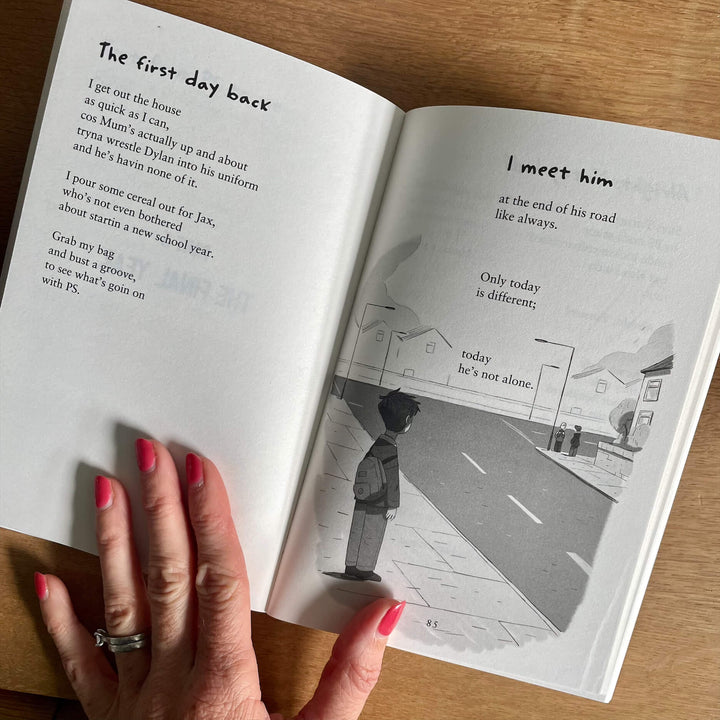 The first day back
I get out the house
as quick as I can,
cos Mum's actually up and about
tryna wrestle Dylan into his uniform
and he's havin none of it.
I pour some cereal out for Jax,
who's not even bothered
about startin a new school year.
Grab my bag
and bust a groove,
to see what's goin on
with PS.
THE FINAL YEAR
I meet him
at the end of his road
like always.
Only today
is different;
today
he's not alone.
85